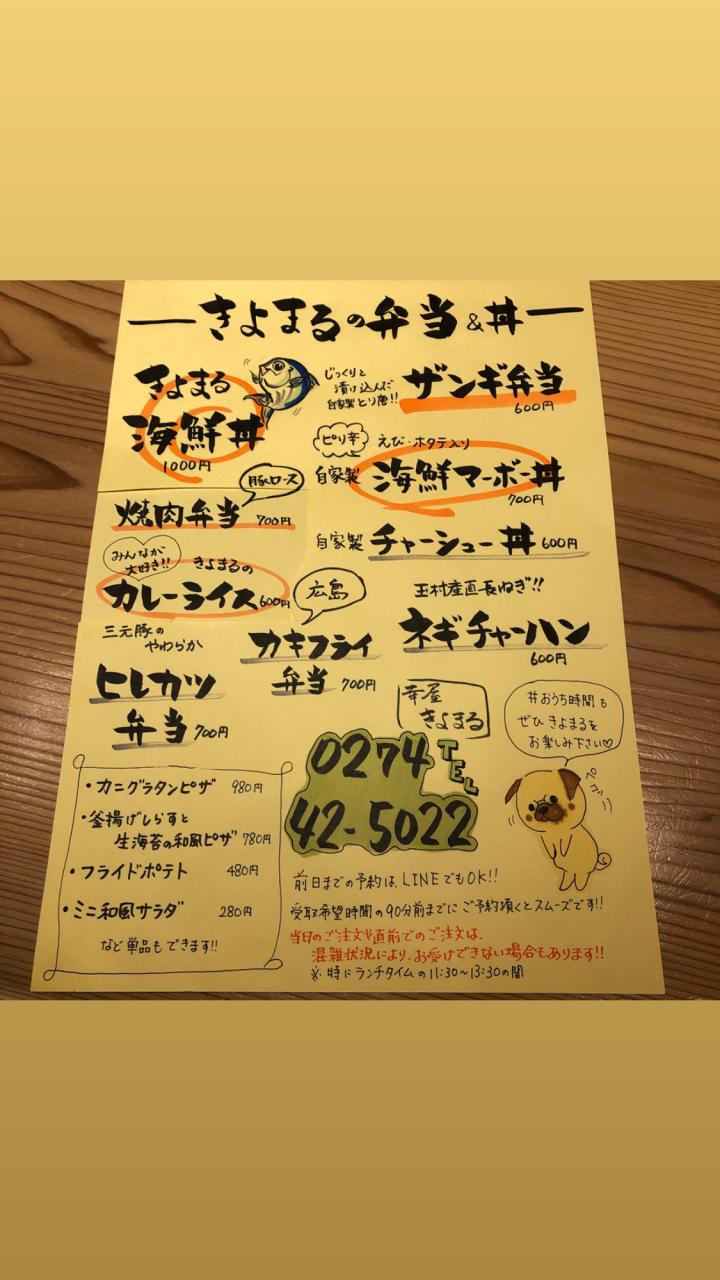 きよまるの弁当&丼
きよまる
海鮮丼
1000円
じっくりと
漬け込んだ
自家製とり唐!!
ザンギ弁当
600円
ピリ辛
えび・ホタテ入り
自家製
海鮮マーボー丼
700円
豚ロース
焼肉弁当 700円
自家製 チャーシュー丼 600円
みんなが
大好き!!
きよまるの
カレーライス 600円
広島
カキフライ
弁当 700円
玉村産直長ねぎ!!
ネギチャーハン
600円
三元豚の
やわらか
ヒレカツ
弁当 700円
幸屋
きよまる
#おうち時間も
ぜひきよまるを
お楽しみ下さい♡
ペコリ
0274
TEL
42-5022
・カニグラタンピザ 980円
・釜揚げしらすと
生海苔の和風ピザ 780円
・フライドポテト 480円
・ミニ和風サラダ 280円
など単品もできます!!
前日までの予約は、LINEでもOK!!
受取希望時間の90分前までにご予約頂くとスムーズです!!
当日のご注文や直前でのご注文は、
混雑状況により、お受けできない場合もあります!!
※特にランチタイムの11:30~13:30の間